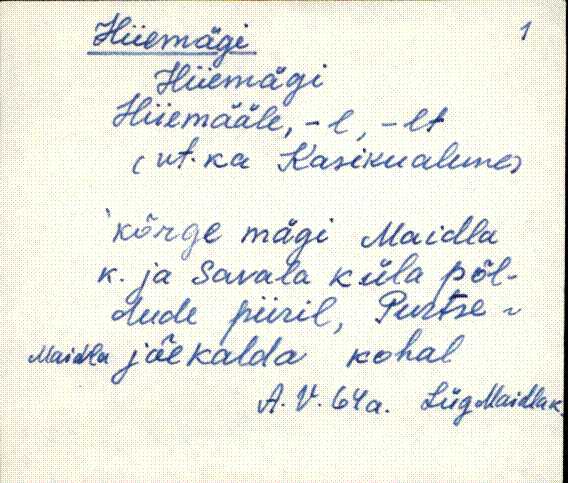 Hiiemägi
1
Hiiemägi
Hiiemääle, -l, -lt
(vt. ka Kasikualune)
'kõrge mägi Maidla
k. ja Savala küla põl-
dude piiril, Purtse -
Maidla jõekalda kohal
A. V. 64a. Lüg Maidla k.